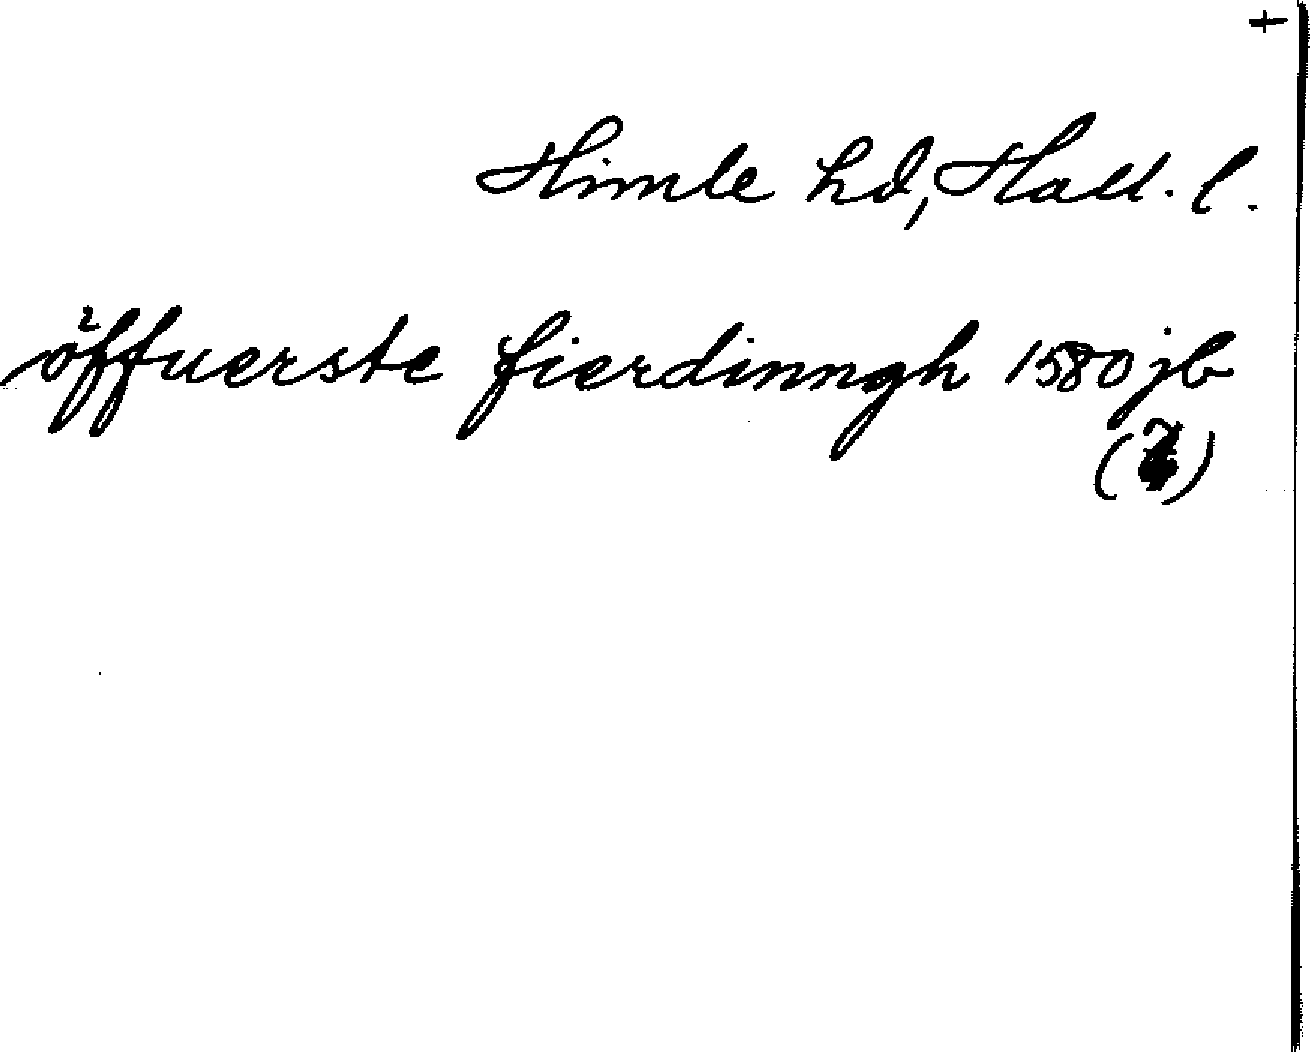 +
Himle hd, Hall. l.
öffuerste fierdinngh 1580 jb